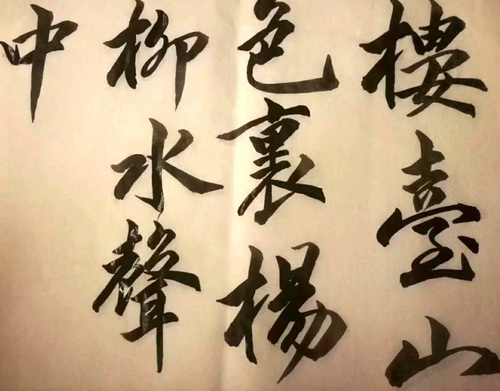 楼臺山
色裏楊
柳水聲
中